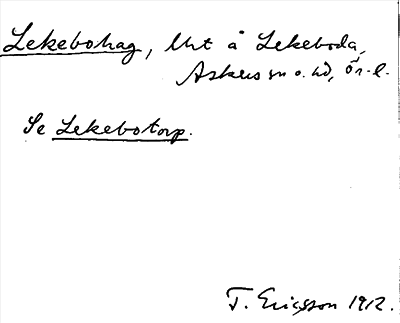 Lekebohag, Utt å Lekeboda,
Askers sn o. hd, Ör. l.
Se Lekebotorp.
T. Ericsson 1912.